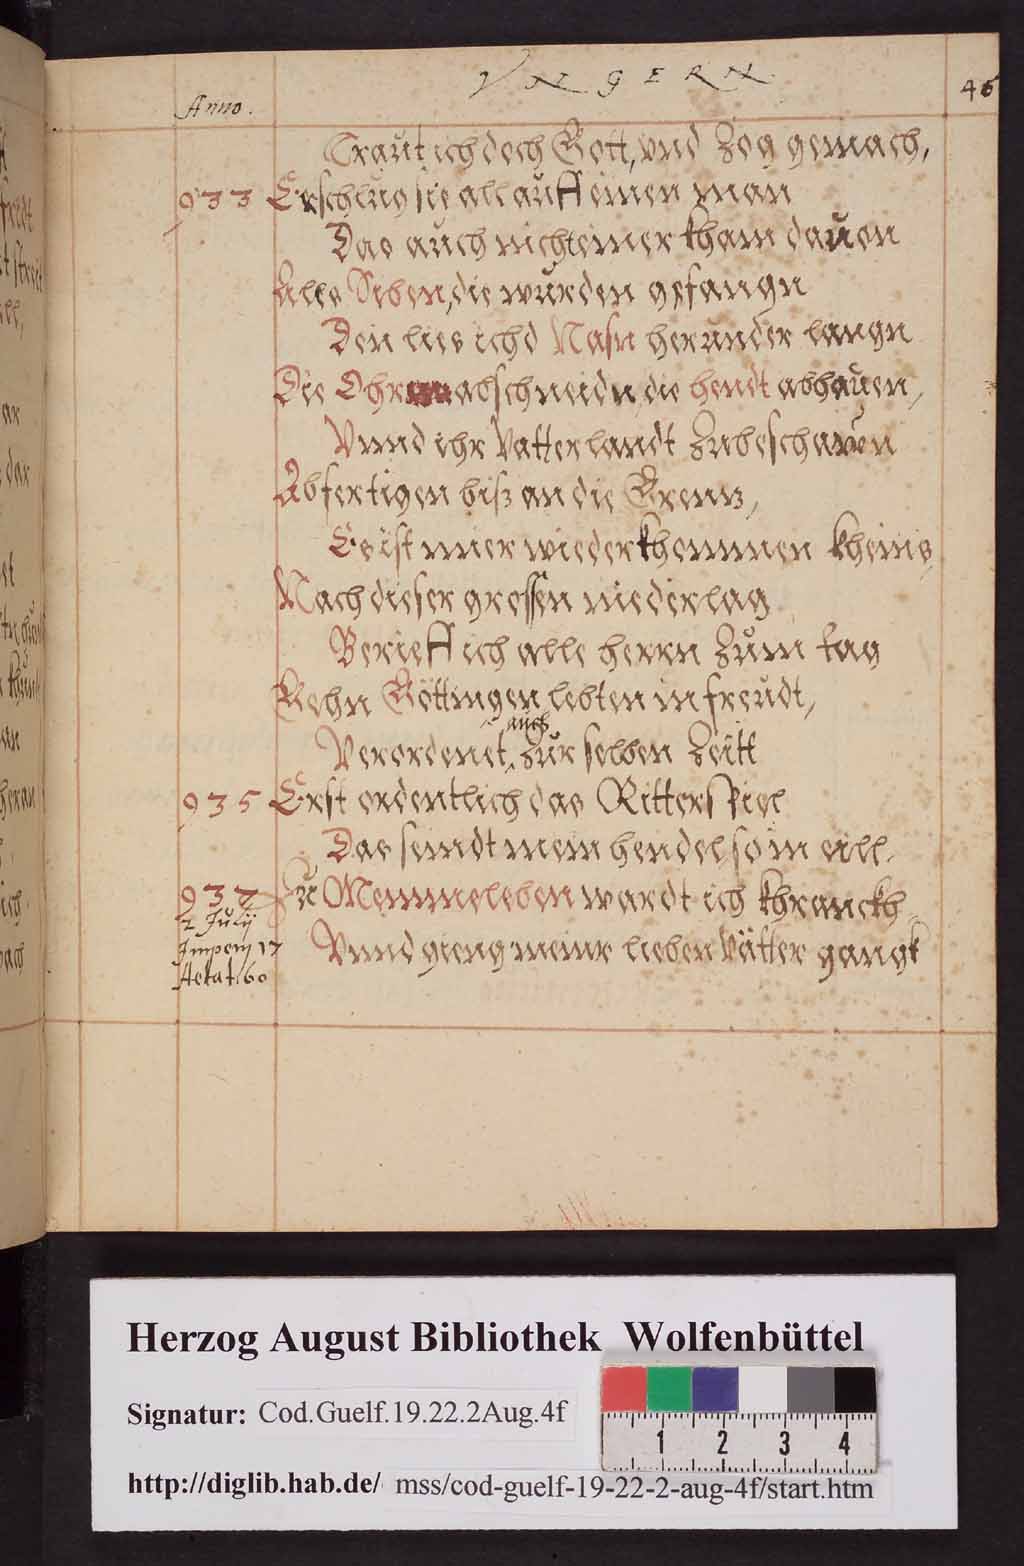 VNGERN
46
Anno.
Traut ich doch Gott, vnd Zog gemach,
933 Erschlug sie all auff einen man
Das auch nicht einer kham dauon
Alle Siben, die wurden gefangn
Den lies ich d Nasn herunder langn
Die Ohrn abschneidn, die hendt abhauen,
Vnnd ihr Vatterlandt Zubeschauen
Abfertigen biß an die Grenz,
Es ist mier wieder khommen kheins,
Nach dieser grossen niederlag
Berieff ich alle herrn Zum tag
Gehn Göttingen, lebten in freudt,
auch
Verordenet, Zur selben Zeitt
935 Erst ordentlich das Ritterspiel
Das seindt mein hendel, so in eill.
937 Zu Memmeleben wardt ich khranckh,
2 Julij
Imperij 17 Vnnd gieng meinr lieben Vätter gangk
Aetat. 60
Herzog August Bibliothek Wolfenbüttel
Signatur: Cod.Guelf.19.22.2Aug.4f
1 2 3 4
http://diglib.hab.de/ mss/cod-guelf-19-22-2-aug-4f/start.htm